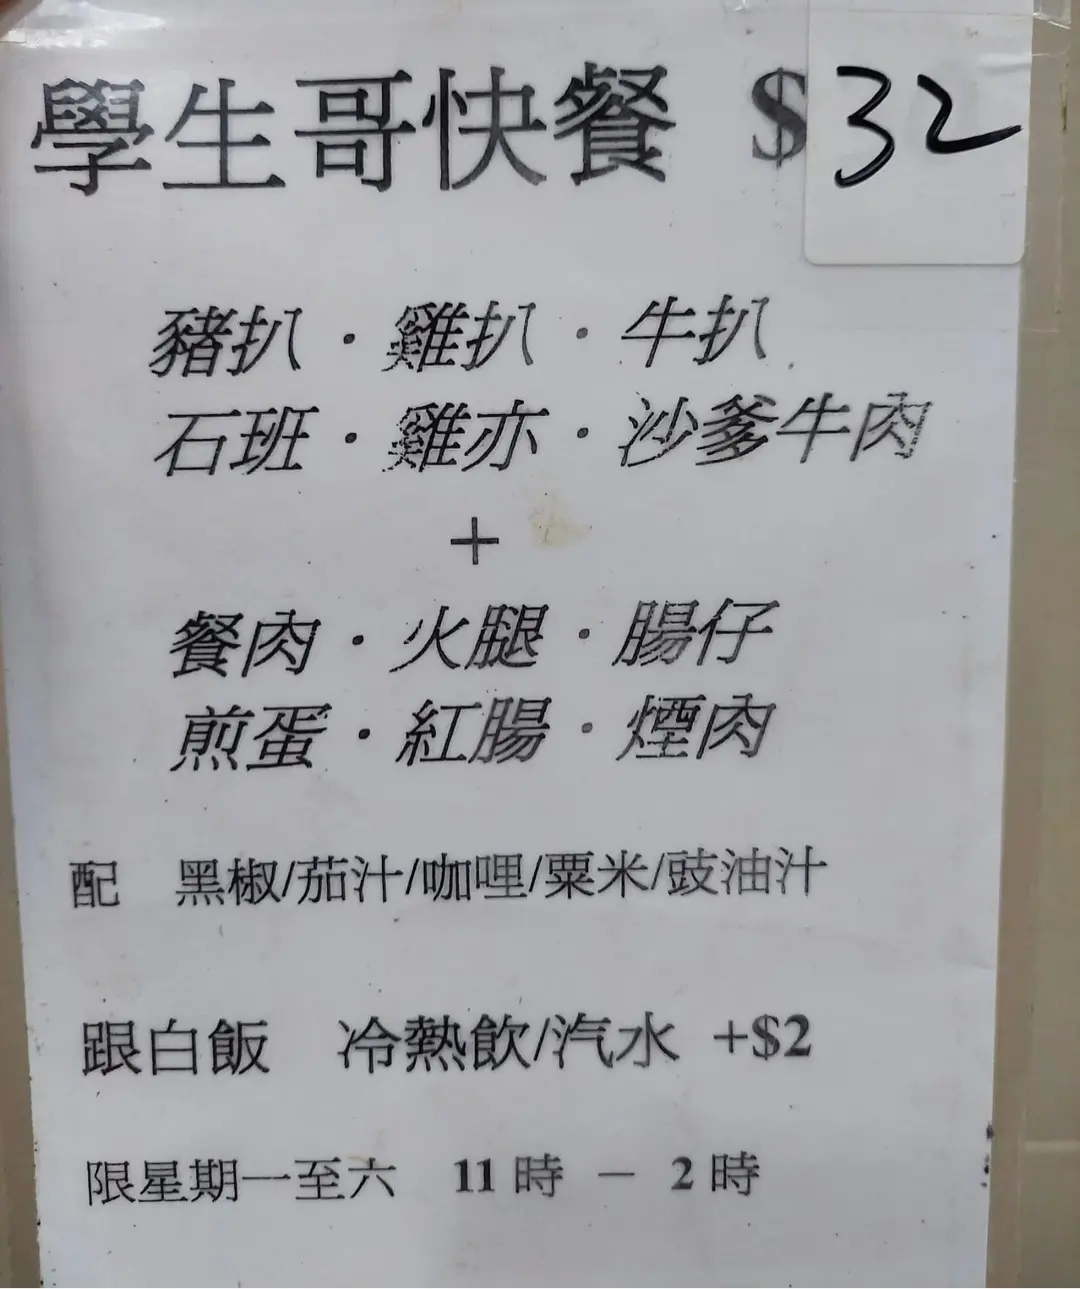 學生哥快餐 $32
豬扒·雞扒·牛扒
石班·雞亦·沙爹牛肉
+
餐肉·火腿·腸仔
煎蛋·紅腸·煙肉
配 黑椒/茄汁/咖哩/粟米/豉油汁
跟白飯 冷熱飲/汽水 +$2
限星期一至六 11時 － 2時